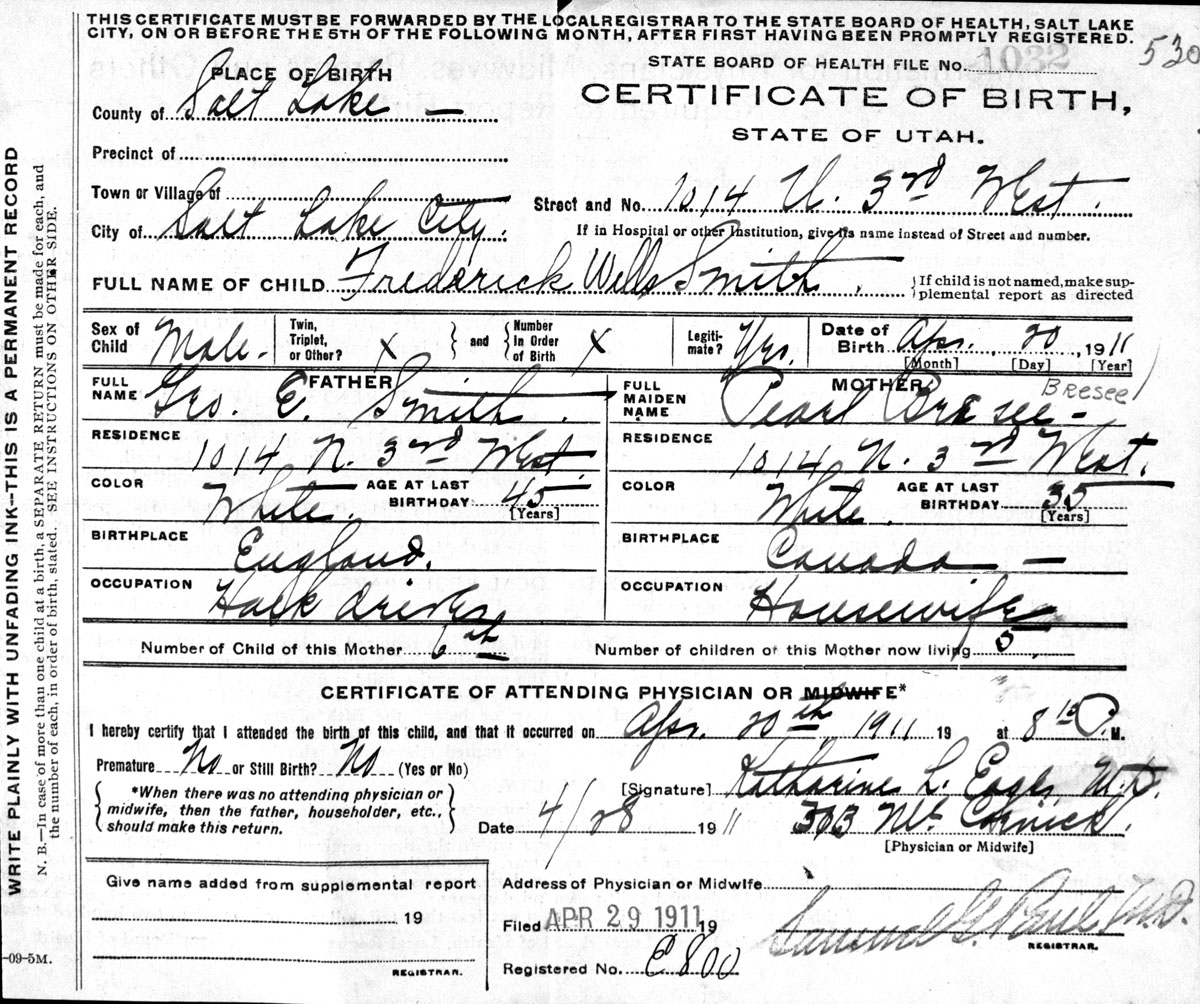 THIS CERTIFICATE MUST BE FORWARDED BY THE LOCAL REGISTRAR TO THE STATE BOARD OF HEALTH, SALT LAKE
CITY, ON OR BEFORE THE 5TH OF THE FOLLOWING MONTH, AFTER FIRST HAVING BEEN PROMPTLY REGISTERED.
530
STATE BOARD OF HEALTH FILE No. 1032
PLACE OF BIRTH
CERTIFICATE OF BIRTH,
STATE OF UTAH.
County of Salt Lake
Precinct of
Town or Village of
Street and No. 1014 N. 3rd West.
City of Salt Lake City.
If in Hospital or other Institution, give its name instead of Street and number.
FULL NAME OF CHILD Frederick Wells Smith.
If child is not named, make sup-
plemental report as directed
Sex of Child Male.
Twin, Triplet, or Other? X and Number In Order of Birth X
Legiti-mate? Yes.
Date of Birth Apr. 20, 1911
[Month] [Day] [Year]
FATHER
FULL NAME Geo. E. Smith.
MOTHER
FULL MAIDEN NAME Pearl Bresee
Bresee
RESIDENCE 1014 N. 3rd West.
RESIDENCE 1014 N. 3rd West.
COLOR White. AGE AT LAST BIRTHDAY 45 [Years]
COLOR White. AGE AT LAST BIRTHDAY 35 [Years]
BIRTHPLACE England.
BIRTHPLACE Canada
OCCUPATION Hack driver
OCCUPATION Housewife
Number of Child of this Mother 6th
Number of children of this Mother now living 5.
CERTIFICATE OF ATTENDING PHYSICIAN OR MIDWIFE*
I hereby certify that I attended the birth of this child, and that it occurred on Apr. 20th, 1911 19 at 8 10 P. M.
Premature No or Still Birth? No (Yes or No)
*When there was no attending physician or
midwife, then the father, householder, etc.,
should make this return.
[Signature] Katharine L. M.D.
Date 4/28 1911
Mc Cornick.
[Physician or Midwife]
Give name added from supplemental report
19
REGISTRAR.
Address of Physician or Midwife
Filed APR 29 1911 19
Samuel G. Paul M.D.
REGISTRAR.
Registered No. E800
WRITE PLAINLY WITH UNFADING INK--THIS IS A PERMANENT RECORD
N. B.—In case of more than one child at a birth, a SEPARATE RETURN must be made for each, and
the number of each, in order of birth, stated. SEE INSTRUCTIONS ON OTHER SIDE.
-09-5M.